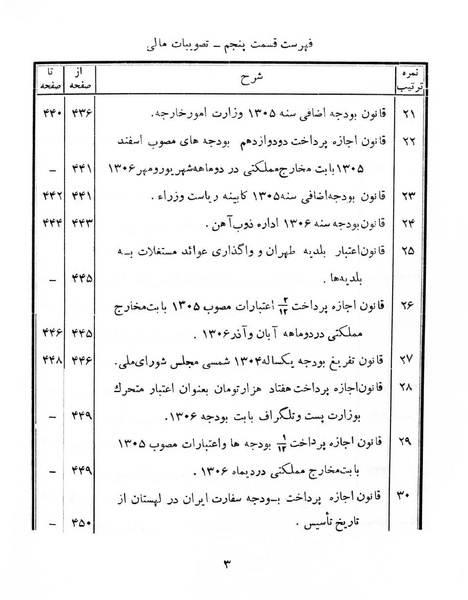 فهرست قسمت پنجم ــ تصویبات مالی
نمره ترتیب | شرح | از صفحه | تا صفحه
۲۱ | قانون بودجه اضافی سنه ۱۳۰۵ وزارت امورخارجه. | ۴۳۶ | ۴۴۰
۲۲ | قانون اجازه پرداخت دودوازدهم بودجه های مصوب اسفند
۱۳۰۵ بابت مخارج مملکتی در دوماهه شهریورومهر ۱۳۰۶ | ۴۴۱ | ــ
۲۳ | قانون بودجه اضافی سنه ۱۳۰۵ کابینه ریاست وزراء . | ۴۴۱ | ۴۴۲
۲۴ | قانون بودجه سنه ۱۳۰۶ اداره ذوب آهن . | ۴۴۳ | ۴۴۴
۲۵ | قانون اعتبار بلدیه طهران و واگذاری عوائد مستغلات بـه
بلدیه‌ها . | ۴۴۵ | ــ
۲۶ | قانون اجازه پرداخت ۲/۱۲ اعتبارات مصوب ۱۳۰۵ بابت مخارج
مملکتی در دوماهه آبان و آذر ۱۳۰۶ . | ۴۴۵ | ۴۴۶
۲۷ | قانون تفریغ بودجه یکساله ۱۳۰۴ شمسی مجلس شورای ملی. | ۴۴۶ | ۴۴۸
۲۸ | قانون اجازه پرداخت هفتاد هزارتومان بعنوان اعتبار متحرك
بوزارت پست و تلگراف بابت بودجه ۱۳۰۶ . | ۴۴۹ | ــ
۲۹ | قانون اجازه پرداخت ۱/۱۲ بودجه ها واعتبارات مصوب ۱۳۰۵
بابت مخارج مملکتی دردیماه ۱۳۰۶ . | ۴۴۹ | ــ
۳۰ | قانون اجازه پرداخت بـودجه سفارت ایران در لهستان از
تاریخ تأسیس . | ۴۵۰ | ــ
۳